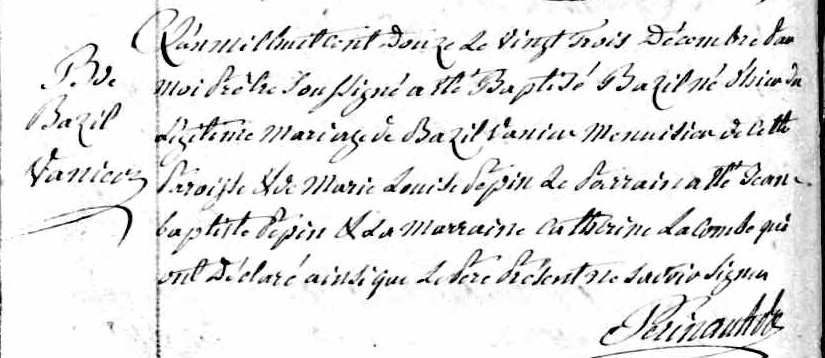 B de
Bazil
Vanier
L'an mil huit cent Douze Le Vingt trois Décembre Par
moi Prêtre Soussigné a eté Baptisé Bazil né d'hier du
Légitime mariage de Bazil Vanier Menuisier de cette
Paroisse & de Marie Louise Pepin Le Parrain a eté Jean
baptiste Pepin & La Marraine Catherine Lacombe qui
ont Déclaré ainsi que Le Père Présent ne savoir signer
Perinault